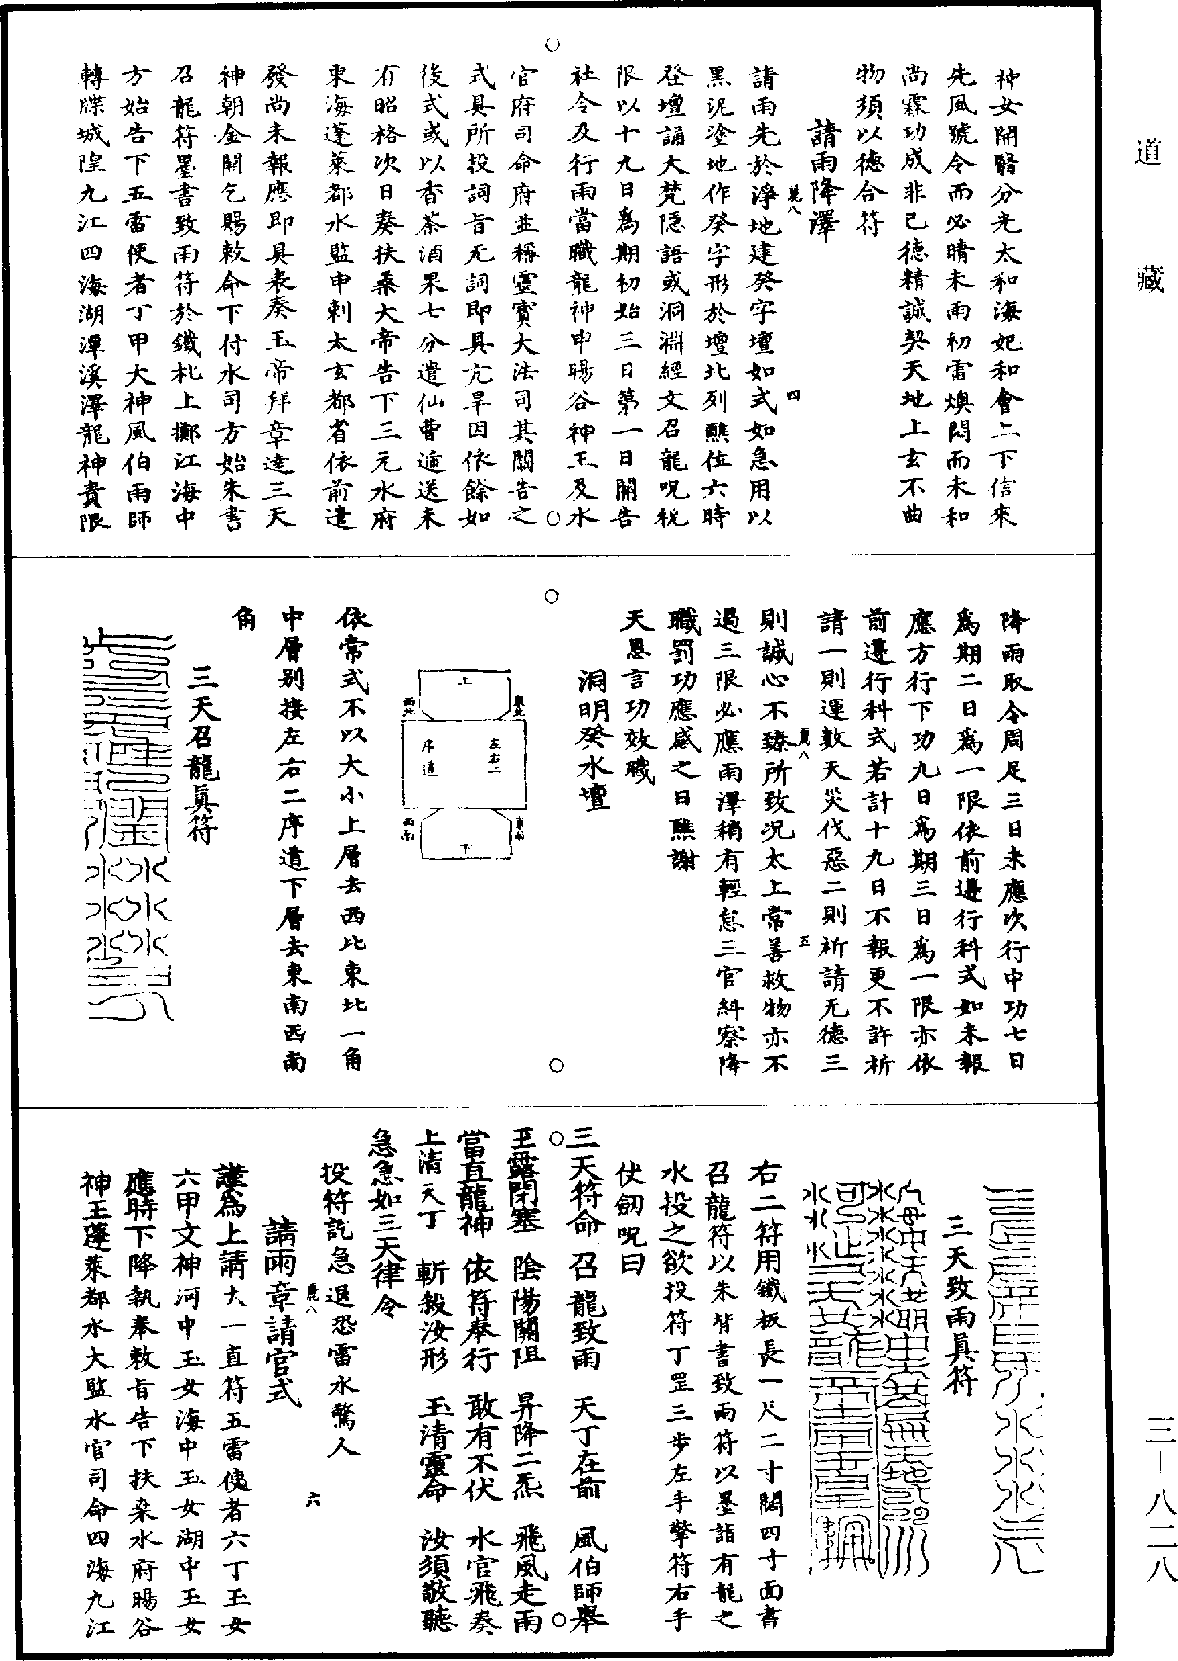 道藏
三—八二八
神女開醫分光太和海妃和會二下信來
先風號令而必晴未雨初雷燠悶而未和
尚霖功成非己德精誠契天地上玄不曲
物須以德合符
請雨降澤
請雨先於淨地建癸字壇如式如急用以
黑泥塗地作癸字形於壇北列醮位六時
登壇誦大梵隱語或洞淵經文召龍呪稅
限以十九日為期初始三日第一日關告
社令及行雨當職龍神申暘谷神王及水
官府司命府並稱靈寶大法司其關告之
式具所投詞旨无詞即具亢旱因依餘如
後式或以香茶酒果七分遣仙曹遞送未
有昭格次日奏扶桑大帝告下三元水府
東海蓬萊都水監申刺太玄都省依前遣
發尚未報應即具表奏玉帝拜章達三天
神朝金闕乞賜敕命下付水司方始朱書
召龍符墨書致雨符於鐵札上擲江海中
方始告下五雷使者丁甲大神風伯雨師
轉牒城隍九江四海湖潭溪澤龍神責限
降雨取令周足三日未應次行中功七日
為期二日為一限依前邊行科式如未報
應方行下功九日為期三日為一限亦依
前邊行科式若計十九日不報更不許祈
請一則運數天災伐惡二則祈請无德三
則誠心不臻所致況太上常善救物亦不
過三限必應雨澤稍有輕怠三官糾察降
職罰功應感之日醮謝
天恩言功效職
洞明癸水壇
上
東北
西北
左右二
序道
東南
西南
下
依常式不以大小上層去西北東北一角
中層別接左右二序道下層去東南西南
角
三天召龍真符
三天致雨真符
右二符用鐵板長一尺二寸闊四寸面書
召龍符以朱背書致雨符以墨詣有龍之
水投之欲投符丁罡三步左手擎符右手
仗劒呪曰
三天符命 召龍致雨 天丁在前 風伯師舉
玉露閉塞 陰陽關阻 昇降二炁 飛風走雨
當直龍神 依符奉行 敢有不伏 水官飛奏
上清天丁 斬殺汝形 玉清靈命 汝須敬聽
急急如三天律令
投符訖急退恐雷水驚人
請雨章請官式
謹為上請大一直符五雷使者六丁玉女
六甲文神河中玉女海中玉女湖中玉女
應時下降執奉敕旨告下扶桑水府暘谷
神王蓬萊都水大監水官司命四海九江